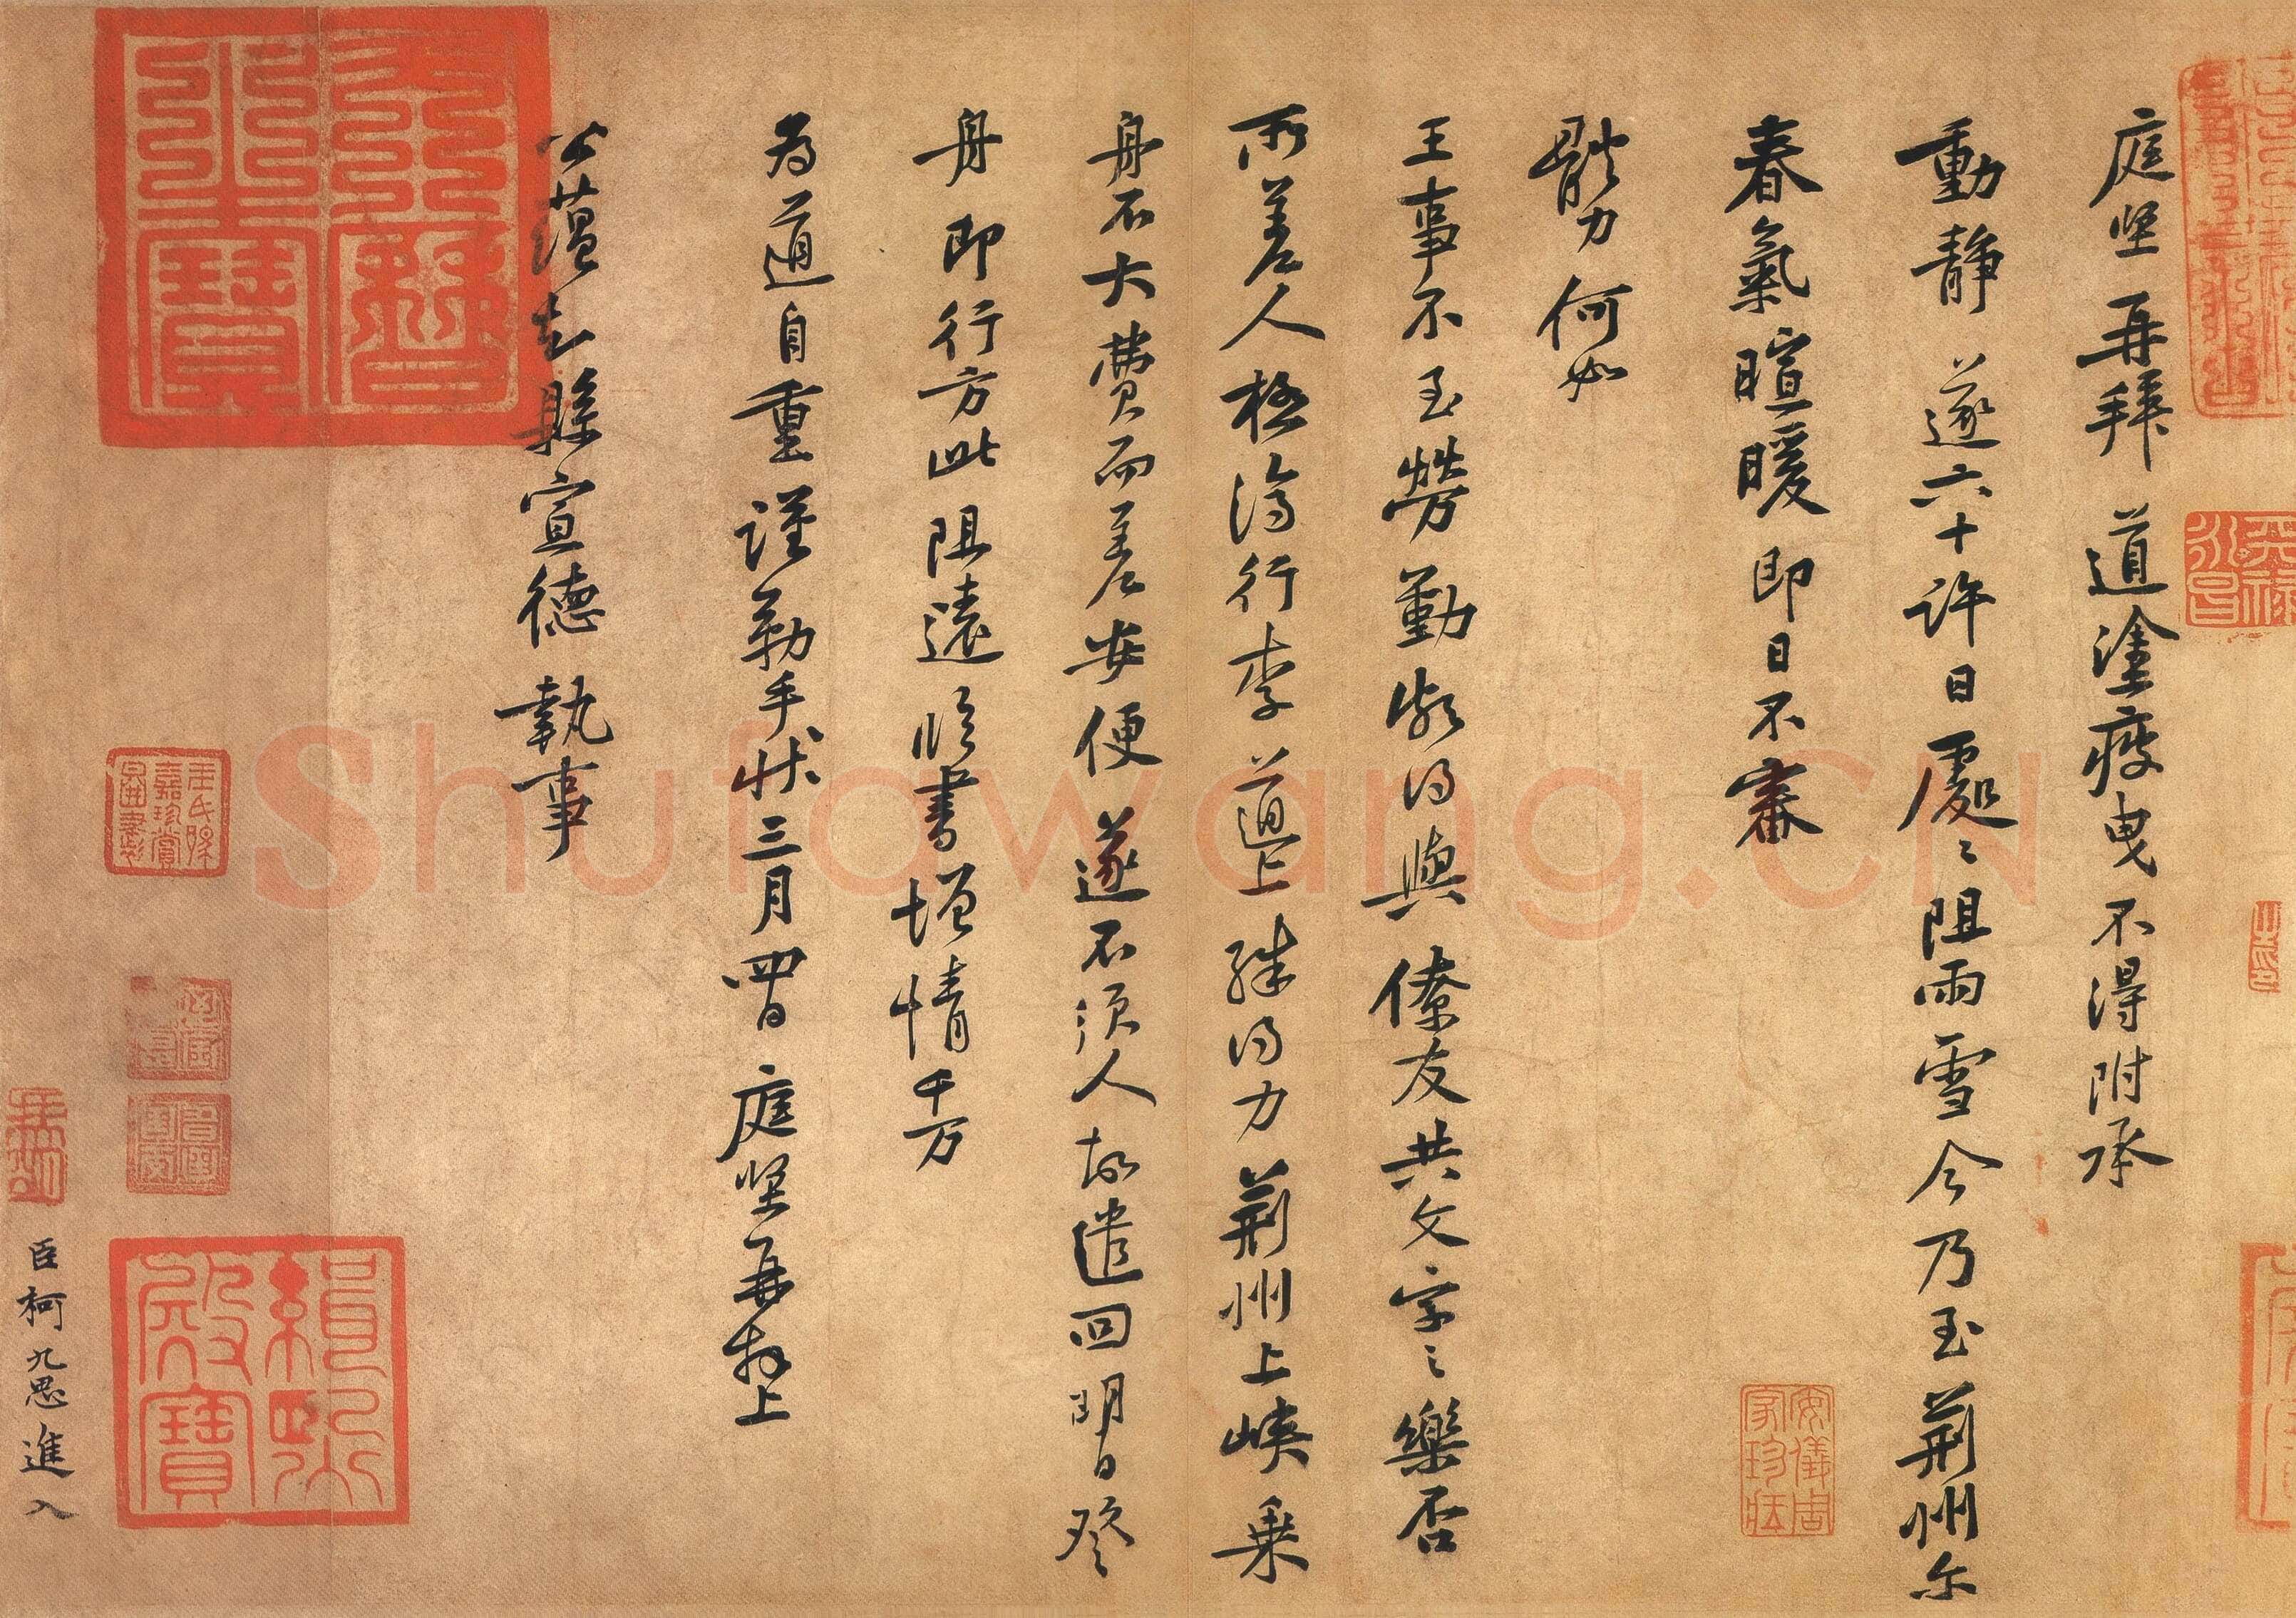 庭堅再拜道塗疲曳不得附承
動靜遂六十許日處〻阻雨雪今乃至荊州尔
春氣暄暖即日不審
體力何如
王事不至勞勤頗得與僚友共文字之樂否
所差人極濟行李道上殊得力荊州上峽乘
舟不大費而差安便遂不須人故遣回明日登
舟即行方此阻遠臨書增情千万
為道自重謹勒手狀三月四日庭堅再拜上
公蘊知縣宣德執事
臣柯九思進入
天曆之寶
緝熙殿寶
安儀周家珍藏
Shufawang.CN